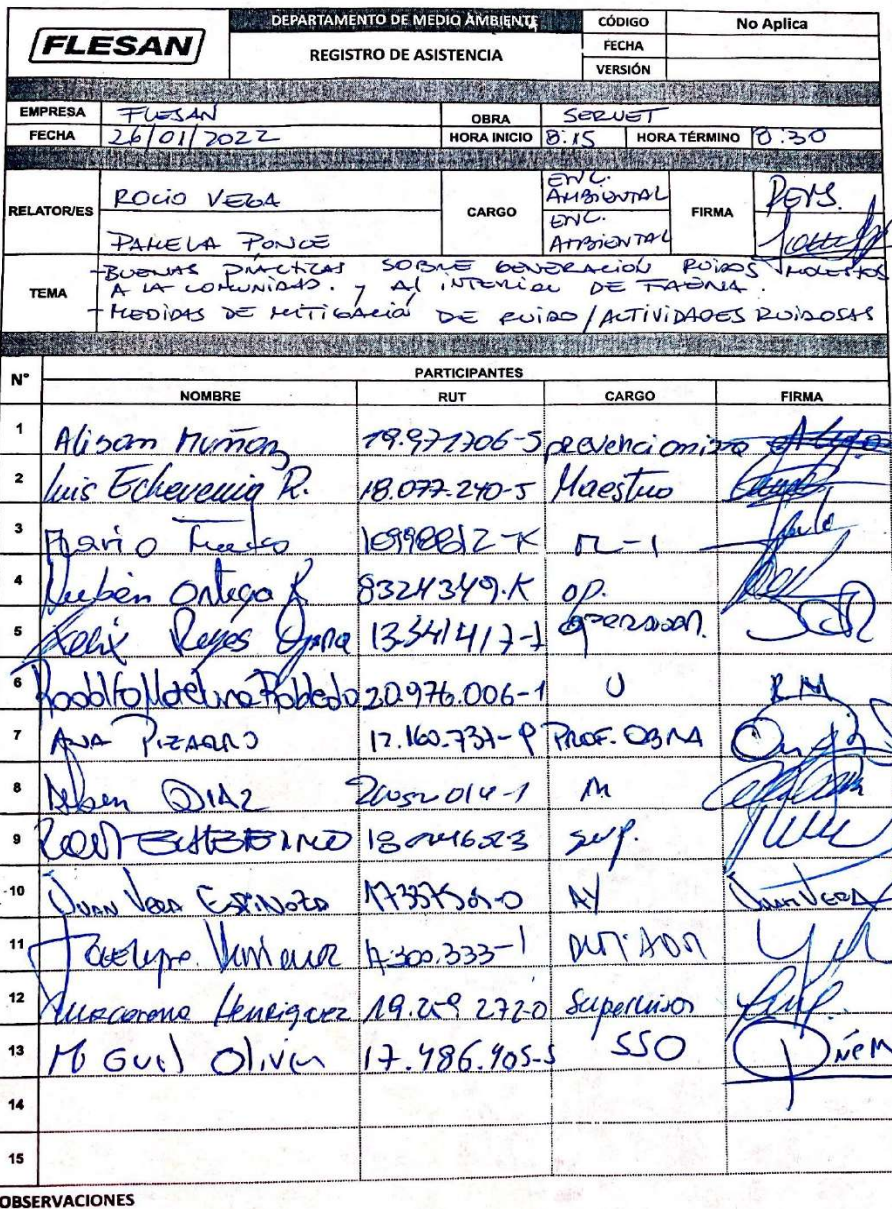 FLESAN
DEPARTAMENTO DE MEDIO AMBIENTE
REGISTRO DE ASISTENCIA
CÓDIGO No Aplica
FECHA
VERSIÓN
EMPRESA FLESAN OBRA SERVET
FECHA 26/01/2022 HORA INICIO 8:15 HORA TÉRMINO 8:30
RELATOR/ES ROCIO VEGA CARGO ENC. AMBIENTAL FIRMA
PAMELA PONCE ENC. AMBIENTAL
TEMA
- BUENAS PRACTICAS SOBRE GENERACIÓN RUIDOS MOLESTOS
A LA COMUNIDAD. Y AL INTERIOR DE FAENA.
- MEDIDAS DE MITIGACIÓN DE RUIDO / ACTIVIDADES RUIDOSAS
N° PARTICIPANTES
NOMBRE RUT CARGO FIRMA
1 Alison Muñoz 19.971706-5 prevencionista
2 Luis Echeverria R. 18.077.240-5 Maestro
3 M-1
4 Rubén Ortega R 8324349.K op.
5 Felix Reyes 13.341417-1 operador.
6 Rodolfo Robledo 20.976.006-1 J RM
7 ANA PIZARRO PROF. OBRA
8 DIAZ M
9 sup.
10 JUAN VERA ESPINOZA AY JUAN VERA
11
12 Henriquez Supervisor
13 MiGuel Oliven 17.486.905-5 SSO
14
15
OBSERVACIONES